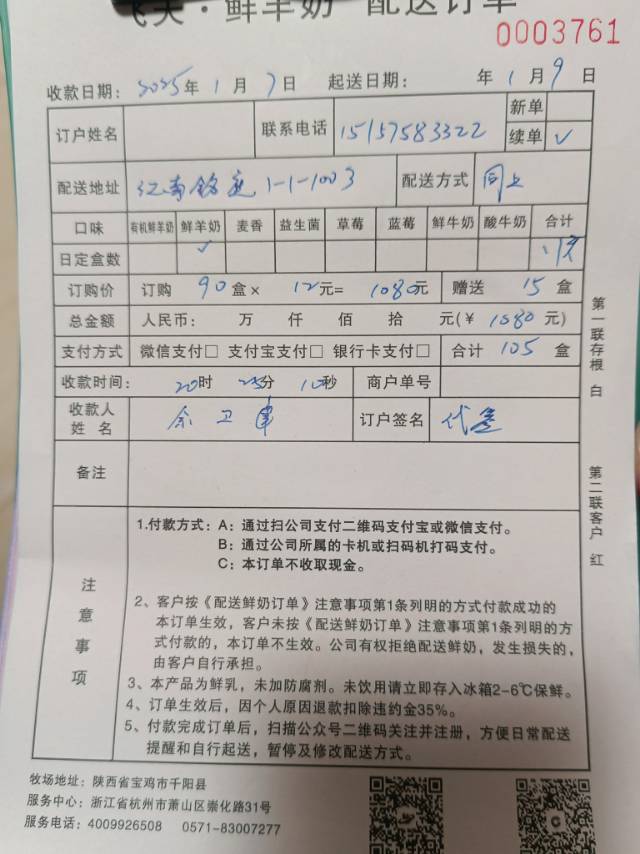 飞天·鲜羊奶 配送订单
0003761
收款日期: 2025年 1 月 7 日 起送日期: 年 1 月 9 日
订户姓名 联系电话 15157583322 新单
续单 ✓
配送地址 江南铭庭 1-1-1003 配送方式 同上
口味 有机鲜羊奶 鲜羊奶 麦香 益生菌 草莓 蓝莓 鲜牛奶 酸牛奶 合计
日定盒数 ✓
订购价 订购 90 盒× 12元= 1080元 赠送 15 盒
总金额 人民币: 万 仟 佰 拾 元(¥ 1080 元)
支付方式 微信支付□ 支付宝支付□ 银行卡支付□ 合计 105 盒
收款时间: 20时 分 10秒 商户单号
收款人
姓 名 余卫 订户签名 代
备注
注意事项
1.付款方式: A: 通过扫公司支付二维码支付宝或微信支付。
B: 通过公司所属的卡机或扫码机打码支付。
C: 本订单不收取现金。
2、客户按《配送鲜奶订单》注意事项第1条列明的方式付款成功的
本订单生效, 客户未按《配送鲜奶订单》注意事项第1条列明的方
式付款的, 本订单不生效。公司有权拒绝配送鲜奶, 发生损失的,
由客户自行承担。
3、本产品为鲜乳, 未加防腐剂。未饮用请立即存入冰箱2-6℃保鲜。
4、订单生效后, 因个人原因退款扣除违约金35%。
5、付款完成订单后, 扫描公众号二维码关注并注册, 方便日常配送
提醒和自行起送, 暂停及修改配送方式。
第一联存根 白
第二联客户 红
牧场地址: 陕西省宝鸡市千阳县
服务中心: 浙江省杭州市萧山区崇化路31号
服务电话: 4009926508 0571-83007277